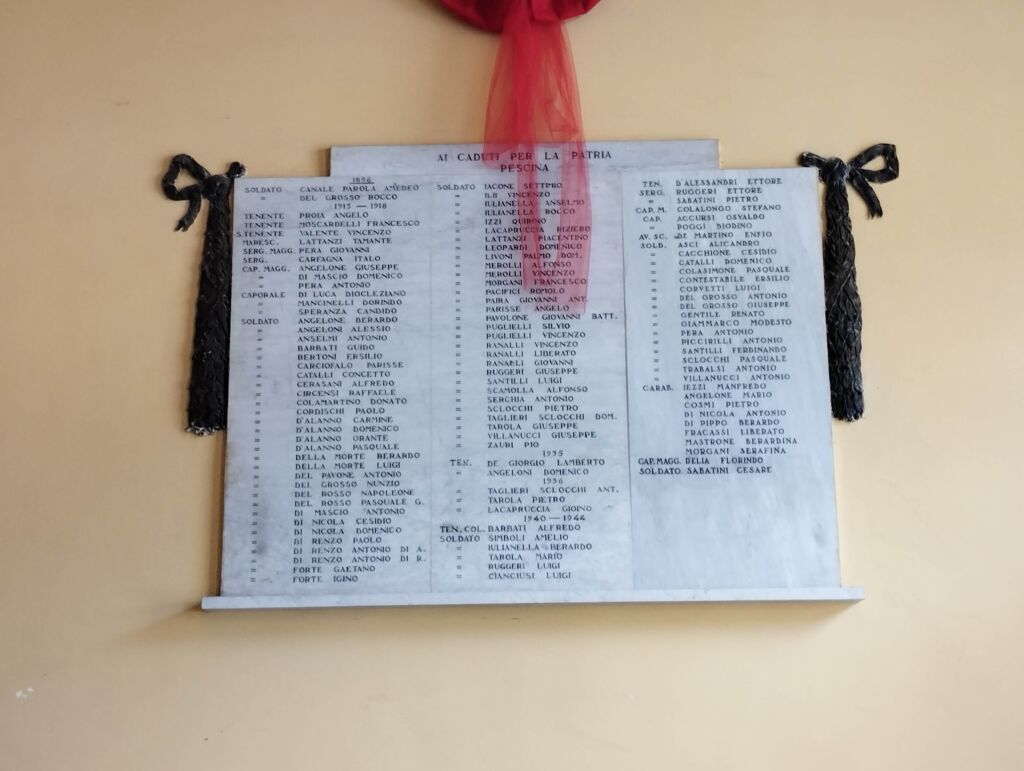 AI CADUTI PER LA PATRIA
PESCINA
1896
SOLDATO CANALE PAROLA AMEDEO
" DEL GROSSO ROCCO
1915 — 1918
TENENTE PROIA ANGELO
TENENTE MOSCARDELLI FRANCESCO
S. TENENTE VALENTE VINCENZO
MARESC. LATTANZI TAMANTE
SERG. MAGG. PERA GIOVANNI
SERG. CARFAGNA ITALO
CAP. MAGG. ANGELONE GIUSEPPE
" DI MASCIO DOMENICO
" PERA ANTONIO
CAPORALE DI LUCA DIOCLEZIANO
" MANCINELLI DORINDO
" SPERANZA CANDIDO
SOLDATO ANGELONE BERARDO
" ANGELONI ALESSIO
" ANSELMI ANTONIO
" BARBATI GUIDO
" BERTONI ERSILIO
" CARCIOFALO PARISSE
" CATALLI CONCETTO
" CERASANI ALFREDO
" CIRCENSI RAFFAELE
" COLAMARTINO DONATO
" CORDISCHI PAOLO
" D'ALANNO CARMINE
" D'ALANNO DOMENICO
" D'ALANNO ORANTE
" D'ALANNO PASQUALE
" DELLA MORTE BERARDO
" DELLA MORTE LUIGI
" DEL PAVONE ANTONIO
" DEL GROSSO NUNZIO
" DEL ROSSO NAPOLEONE
" DEL ROSSO PASQUALE G.
" DI MASCIO ANTONIO
" DI NICOLA CESIDIO
" DI NICOLA DOMENICO
" DI RENZO PAOLO
" DI RENZO ANTONIO DI A.
" DI RENZO ANTONIO DI R.
" FORTE GAETANO
" FORTE IGINO
SOLDATO IACONE SETTIMIO
" VINCENZO
" IULIANELLA ANSELMO
" IULIANELLA ROCCO
" IZZI QUIRINO
" LACAPRUCCIA RIZIERO
" LATTANZI PIACENTINO
" LEOPARDI DOMENICO
" LIVONI PALMO DOM.
" MEROLLI ALFONSO
" MEROLLI VINCENZO
" MORGANI FRANCESCO
" PACIFICI ROMOLO
" PAIRA GIOVANNI ANT.
" PARISSE ANGELO
" PAVOLONE GIOVANNI BATT.
" PUGLIELLI SILVIO
" PUGLIELLI VINCENZO
" RANALLI VINCENZO
" RANALLI LIBERATO
" RANALLI GIOVANNI
" RUGGERI GIUSEPPE
" SANTILLI LUIGI
" SCAMOLLA ALFONSO
" SERCHIA ANTONIO
" SCLOCCHI PIETRO
" TAGLIERI SCLOCCHI DOM.
" TAROLA GIUSEPPE
" VILLANUCCI GIUSEPPE
" ZAURI PIO
1935
TEN. DE GIORGIO LAMBERTO
" ANGELONI DOMENICO
1936
" TAGLIERI SCLOCCHI ANT.
" TAROLA PIETRO
" LACAPRUCCIA GIOINO
1940 — 1944
TEN. COL. BARBATI ALFREDO
SOLDATO SIMBOLI AMELIO
" IULIANELLA BERARDO
" TAROLA MARIO
" RUGGERI LUIGI
" CIANCIUSI LUIGI
TEN. D'ALESSANDRI ETTORE
SERG. RUGGERI ETTORE
" SABATINI PIETRO
CAP. M. COLALONGO STEFANO
CAP. ACCURSI OSVALDO
" POGGI BIODINO
AV. SC. DE MARTINO ENFIO
SOLD. ASCI ALICANDRO
" CACCHIONE CESIDIO
" CATALLI DOMENICO
" COLASIMONE PASQUALE
" CONTESTABILE ERSILIO
" CORVETTI LUIGI
" DEL GROSSO ANTONIO
" DEL GROSSO GIUSEPPE
" GENTILE RENATO
" GIAMMARCO MODESTO
" PERA ANTONIO
" PICCIRILLI ANTONIO
" SANTILLI FERDINANDO
" SCLOCCHI PASQUALE
" TRABALSI ANTONIO
" VILLANUCCI ANTONIO
CARAB. IEZZI MANFREDO
ANGELONE MARIO
COSMI PIETRO
DI NICOLA ANTONIO
DI PIPPO BERARDO
FRACASSI LIBERATO
MASTRONE BERARDINA
MORGANI SERAFINA
CAP. MAGG. D'ELIA FLORINDO
SOLDATO SABATINI CESARE